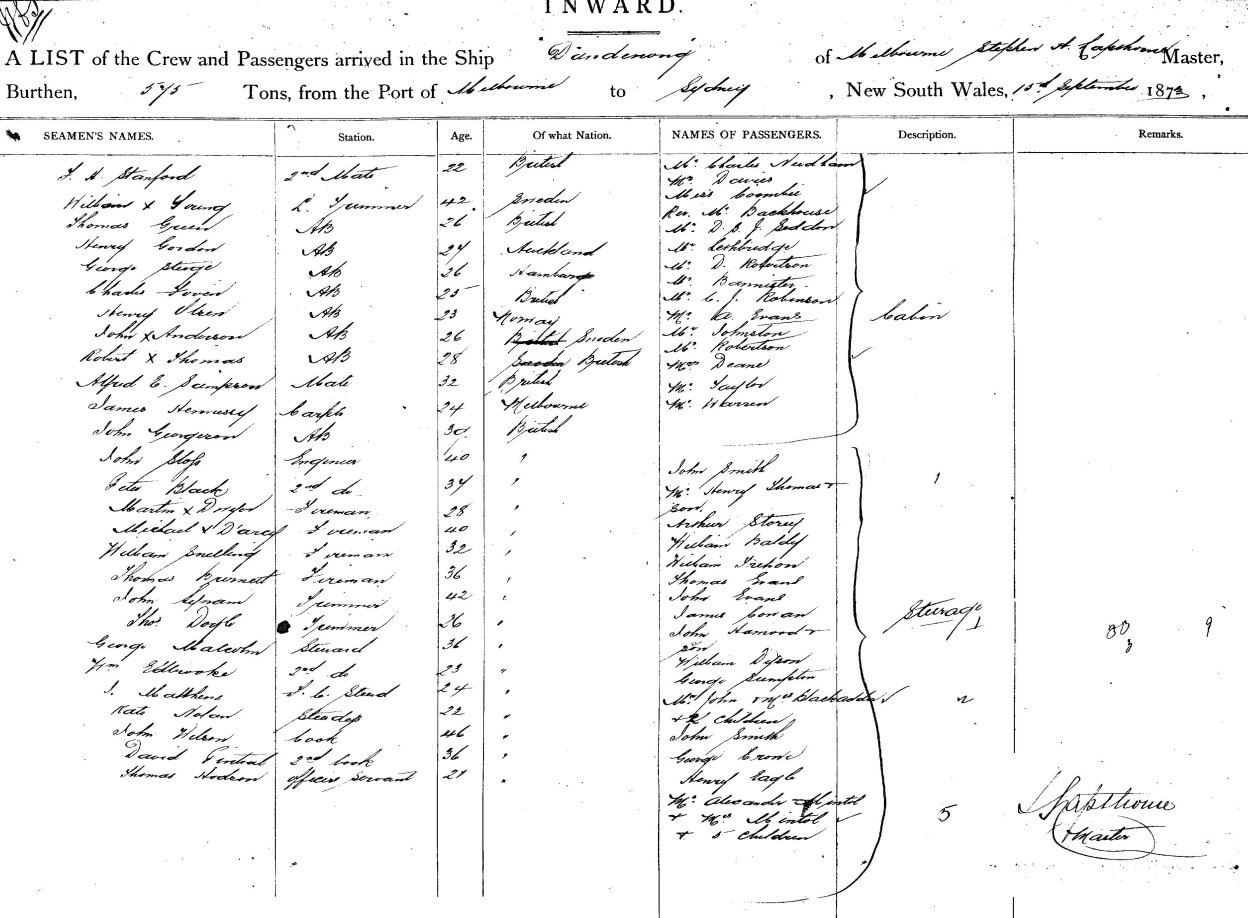 INWARD.
A LIST of the Crew and Passengers arrived in the Ship Dandenong of Melbourne Stephen A. Lapthorne Master,
Burthen, 575 Tons, from the Port of Melbourne to Sydney, New South Wales, 15th September 1873,
SEAMEN'S NAMES. Station. Age. Of what Nation. NAMES OF PASSENGERS. Description. Remarks.
Stanford 2nd Mate 22 British
William x Young L. Trimmer 42 Sweden
Thomas Green AB 26 British
Henry Gordon AB 27 Auckland
George AB 26 Hamburg
Charles AB 25 British
Henry Olsen AB 23 Norway
John x Anderson AB 26 British Sweden
Robert x Thomas AB 28 Sweden British
Alfred E. Sampson Mate 32 British
James Hennessy Carptr 24 Melbourne
John Georgeson AB 30 British
John Sloss Engineer 40 "
Peter Black 2nd do 37 "
Martin x Fireman 28 "
Michael x D'arcy Fireman 40 "
William Snelling Fireman 32 "
Thomas Burnett Fireman 36 "
John Lynam Trimmer 42 "
Thos Doyle Trimmer 26 "
George Malcolm Steward 36 "
Wm Edbrooke 2nd do 23 "
J. Matthews S. C. Stewd 24 "
Kate Nolan Stewdss 22 "
John Wilson Cook 46 "
David 2nd Cook 36 "
Thomas Hodson officers servant 21 "
Mr. Charles Needham
Mr. Davies
Miss Coombie
Rev. Mr. Backhouse
Mr. D. S. J. Seddon
Mr. Lethbridge
Mr. D. Robertson
Mr. Bannister
Mr. C. J. Robinson
Mr. A. Evans
Mr. Johnston
Mr. Robertson
Mrs Deane
Mr. Taylor
Mr. Warren
Cabin
John Smith
Mr. Henry Thomas +
son 1
Arthur Storey
William Baldy
William Trehon
Thomas Evans
John Evans
James Cowan
John Hamood +
son
William Dyson
George Sumpton
Mr. John + Mrs Blackadder
+ 2 children 2
John Smith
George Crowe
Henry Eagle
Mr. Alexander Mintol
+ Mrs Mintol
+ 5 children 5
Steerage 1
9
Lapthorne
Master